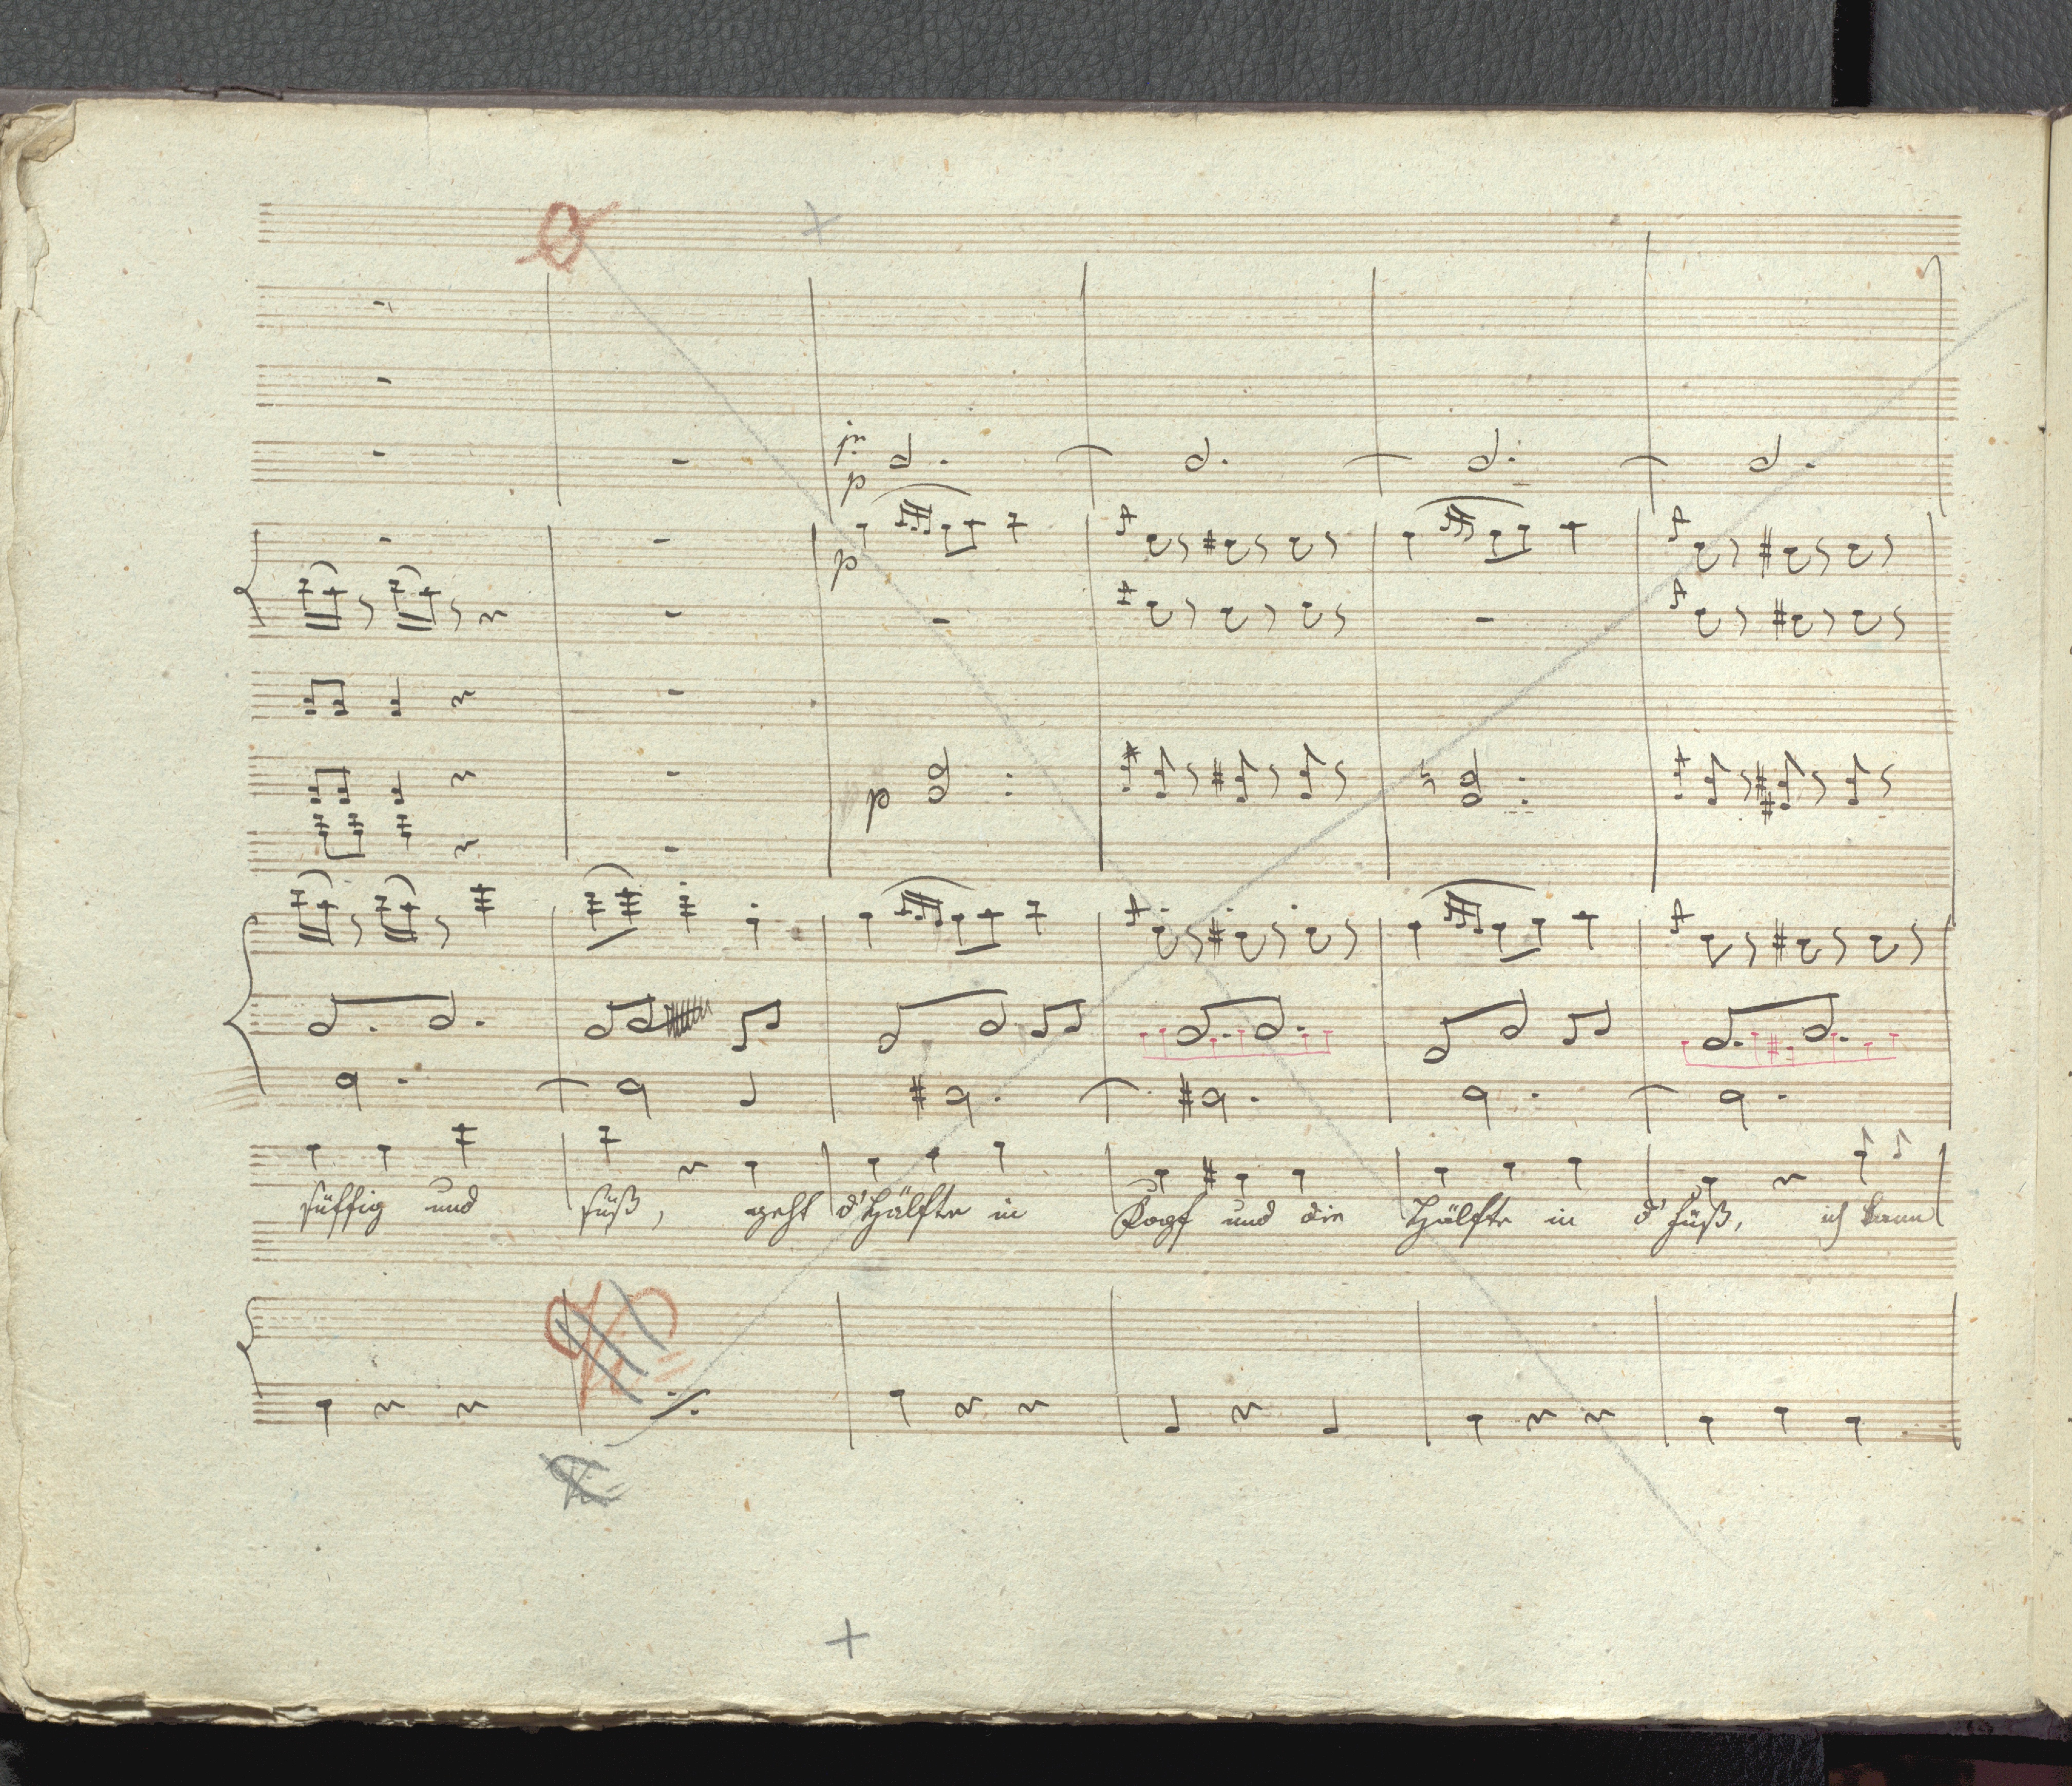 p
p
p
süffig und süß, geht d'Hälfte in Kopf und die Hälfte in d'Füß, ich kann